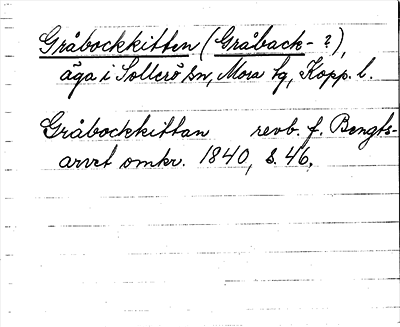 Gråbockkitten (Gråback- ?),
äga i Sollerö sn, Mora tg, Kopp. l.
Gråbockkittan revb. f. Bengts-
arvet omkr. 1840, s. 46.